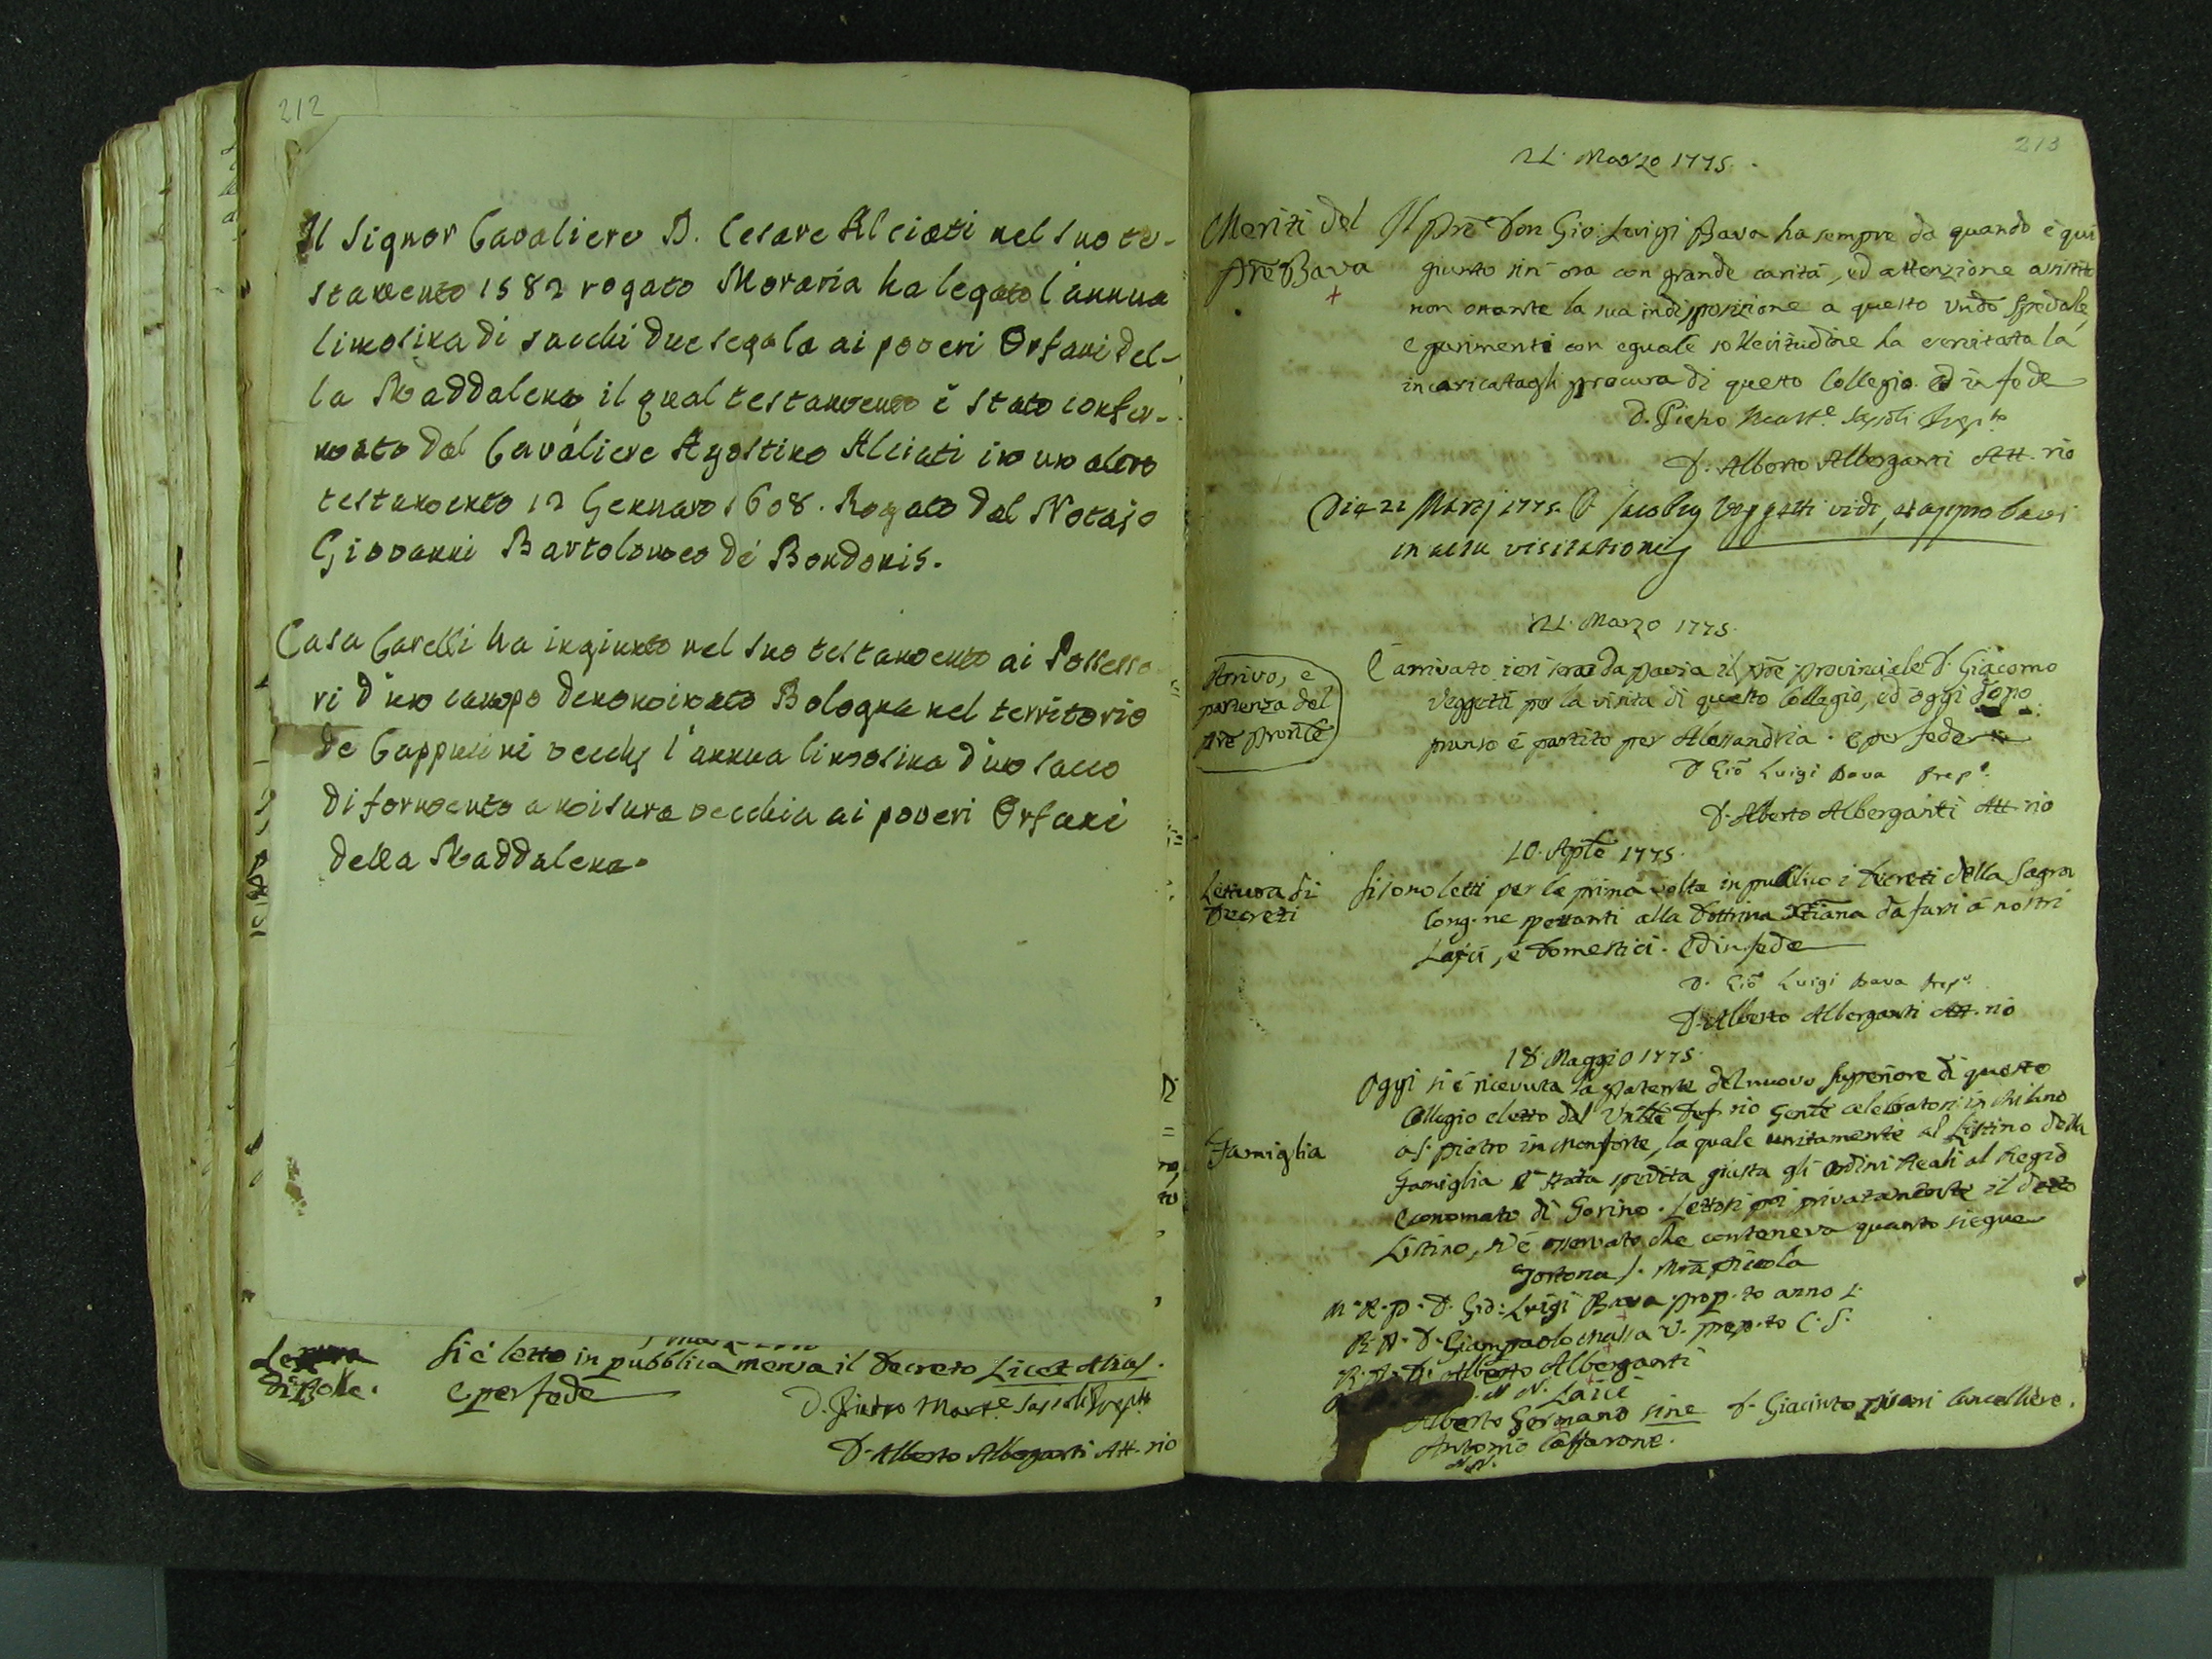 212
Il Signor Cavaliere D. Cesare Alciati nel suo te-
stamento 1582 rogato Moraria ha legato l'annua
limosina di sacchi due segala ai poveri Orfani del-
la Maddalena il qual testamento è stato confer-
mato dal Cavaliere Agostino Alciati in un altro
testamento 12 Gennaro 1608. Rogato dal Notajo
Giovanni Bartolomeo dé Bondonis.
Casa Garelli ha ingiunto nel suo testamento ai Possesso
ri d'un campo denominato Bologna nel territorio
de Cappucini vecchj l'annua limosina d'un sacco
di formento a misura vecchia ai poveri Orfani
della Maddalena.
Lettura
di Bolle.
Si è letto in pubblica mensa il Decreto Licet Alias.
e per fede
D. Pietro Mart.e Sapioli Prep.to
D. Alberto Alberganti Att.rio
213
21. Marzo 1775.
Meriti del
Pre Bava
Il Pre Don Gio: Luigi Bava ha sempre da quando è qui
giunto sin' ora con grande carità, ed attenzione assistito
non ostante la sua indisposizione a questo Vndo Spedale,
e parimenti con eguale sollecitudine ha esercitata la
incaricatagli procura di questo Collegio. Ed in fede
D. Pietro Mart.e Sapioli Prep.to
D. Alberto Alberganti Att.rio
Die 21 Martij 1775. D. Jacobus Veggetti vidi, et approbavi
in actu visitationis
21. Marzo 1775.
Arrivo, e
partenza del
Pre Provlē
È arrivato ieri sera da Pavia il Pre Provinciale D. Giacomo
Veggetti per la visita di questo Collegio, ed oggi dopo
pranso è partito per Alessandria. E per fede
D Gio Luigi Bava Prep.o
D. Alberto Alberganti Att.rio
10. Aplē 1775.
Lettura di
Decreti
Si sono letti per la prima volta in publico i Decreti della Sagra
Cong.ne spettanti alla Dottrina Xtiana da farsi a nostri
Laici, e Domestici. Ed in fede
D. Gio Luigi Bava Prep.o
D. Alberto Alberganti Att.rio
18. Maggio 1775.
Famiglia
Oggi si è ricevuta la patente del nuovo Superiore di questo
Collegio eletto dal Vnble Def.rio Genle celebratosi in Milano
a S. Pietro in Monforte, la quale unitamente al Listino della
Famiglia è stata spedita giusta gli ordini Reali al Regio
Economato di Torino. Lettosi poi privatamente il detto
Listino, si è osservato che conteneva quanto siegue
Tortona S. Mra Picola
M. R. P. D. Gio: Luigi Bava prep.to anno 1.
R. P. D. Giampaolo Massa V. prep.to C. S.
R. P. D. Alberto Alberganti
D. N N. Laici
Alberto Germano sine D. Giacinto Pisani Cancelliere.
Antonio Caffarone.
N N.